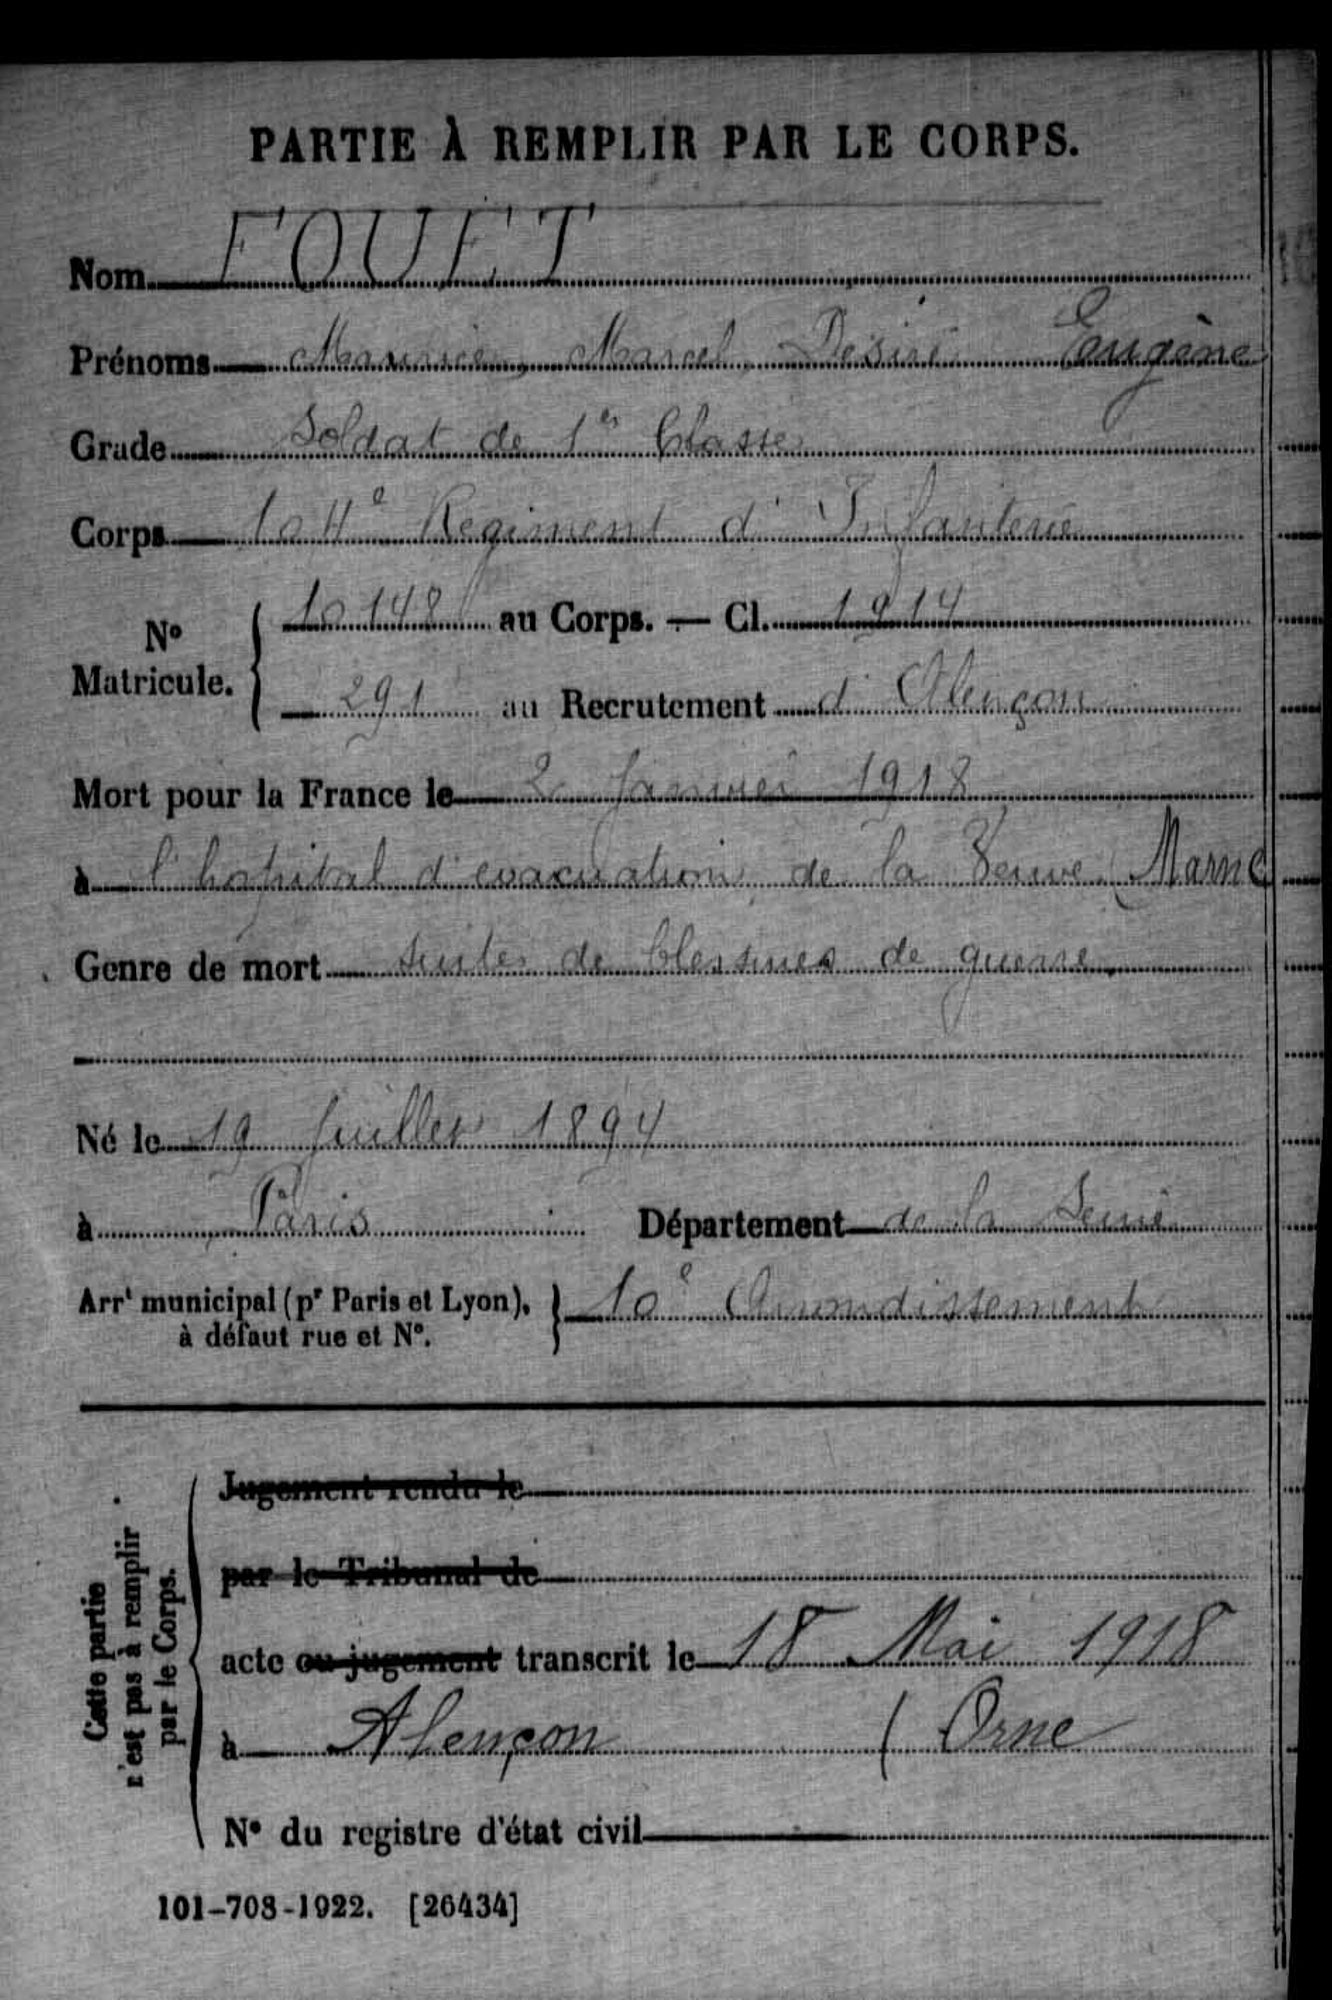 PARTIE À REMPLIR PAR LE CORPS.
Nom FOUET
Prénoms Maurice, Marcel, Désiré Eugène
Grade Soldat de 1re Classe
Corps 104e Régiment d'Infanterie
No Matricule. 10148 au Corps. — Cl. 1914
291 au Recrutement d'Alençon
Mort pour la France le 2 Janvier 1918
à l'hopital d'evacuation de la Veuve (Marne
Genre de mort suites de blessures de guerre
Né le 19 Juillet 1894
à Paris Département de la Seine
Arrt municipal (pr Paris et Lyon), à défaut rue et No. 10e Arrondissement
Cette partie n'est pas à remplir par le Corps.
Jugement rendu le
par le Tribunal de
acte ou jugement transcrit le 18 Mai 1918
à Alençon (Orne
No du registre d'état civil
101-708-1922. [26434]